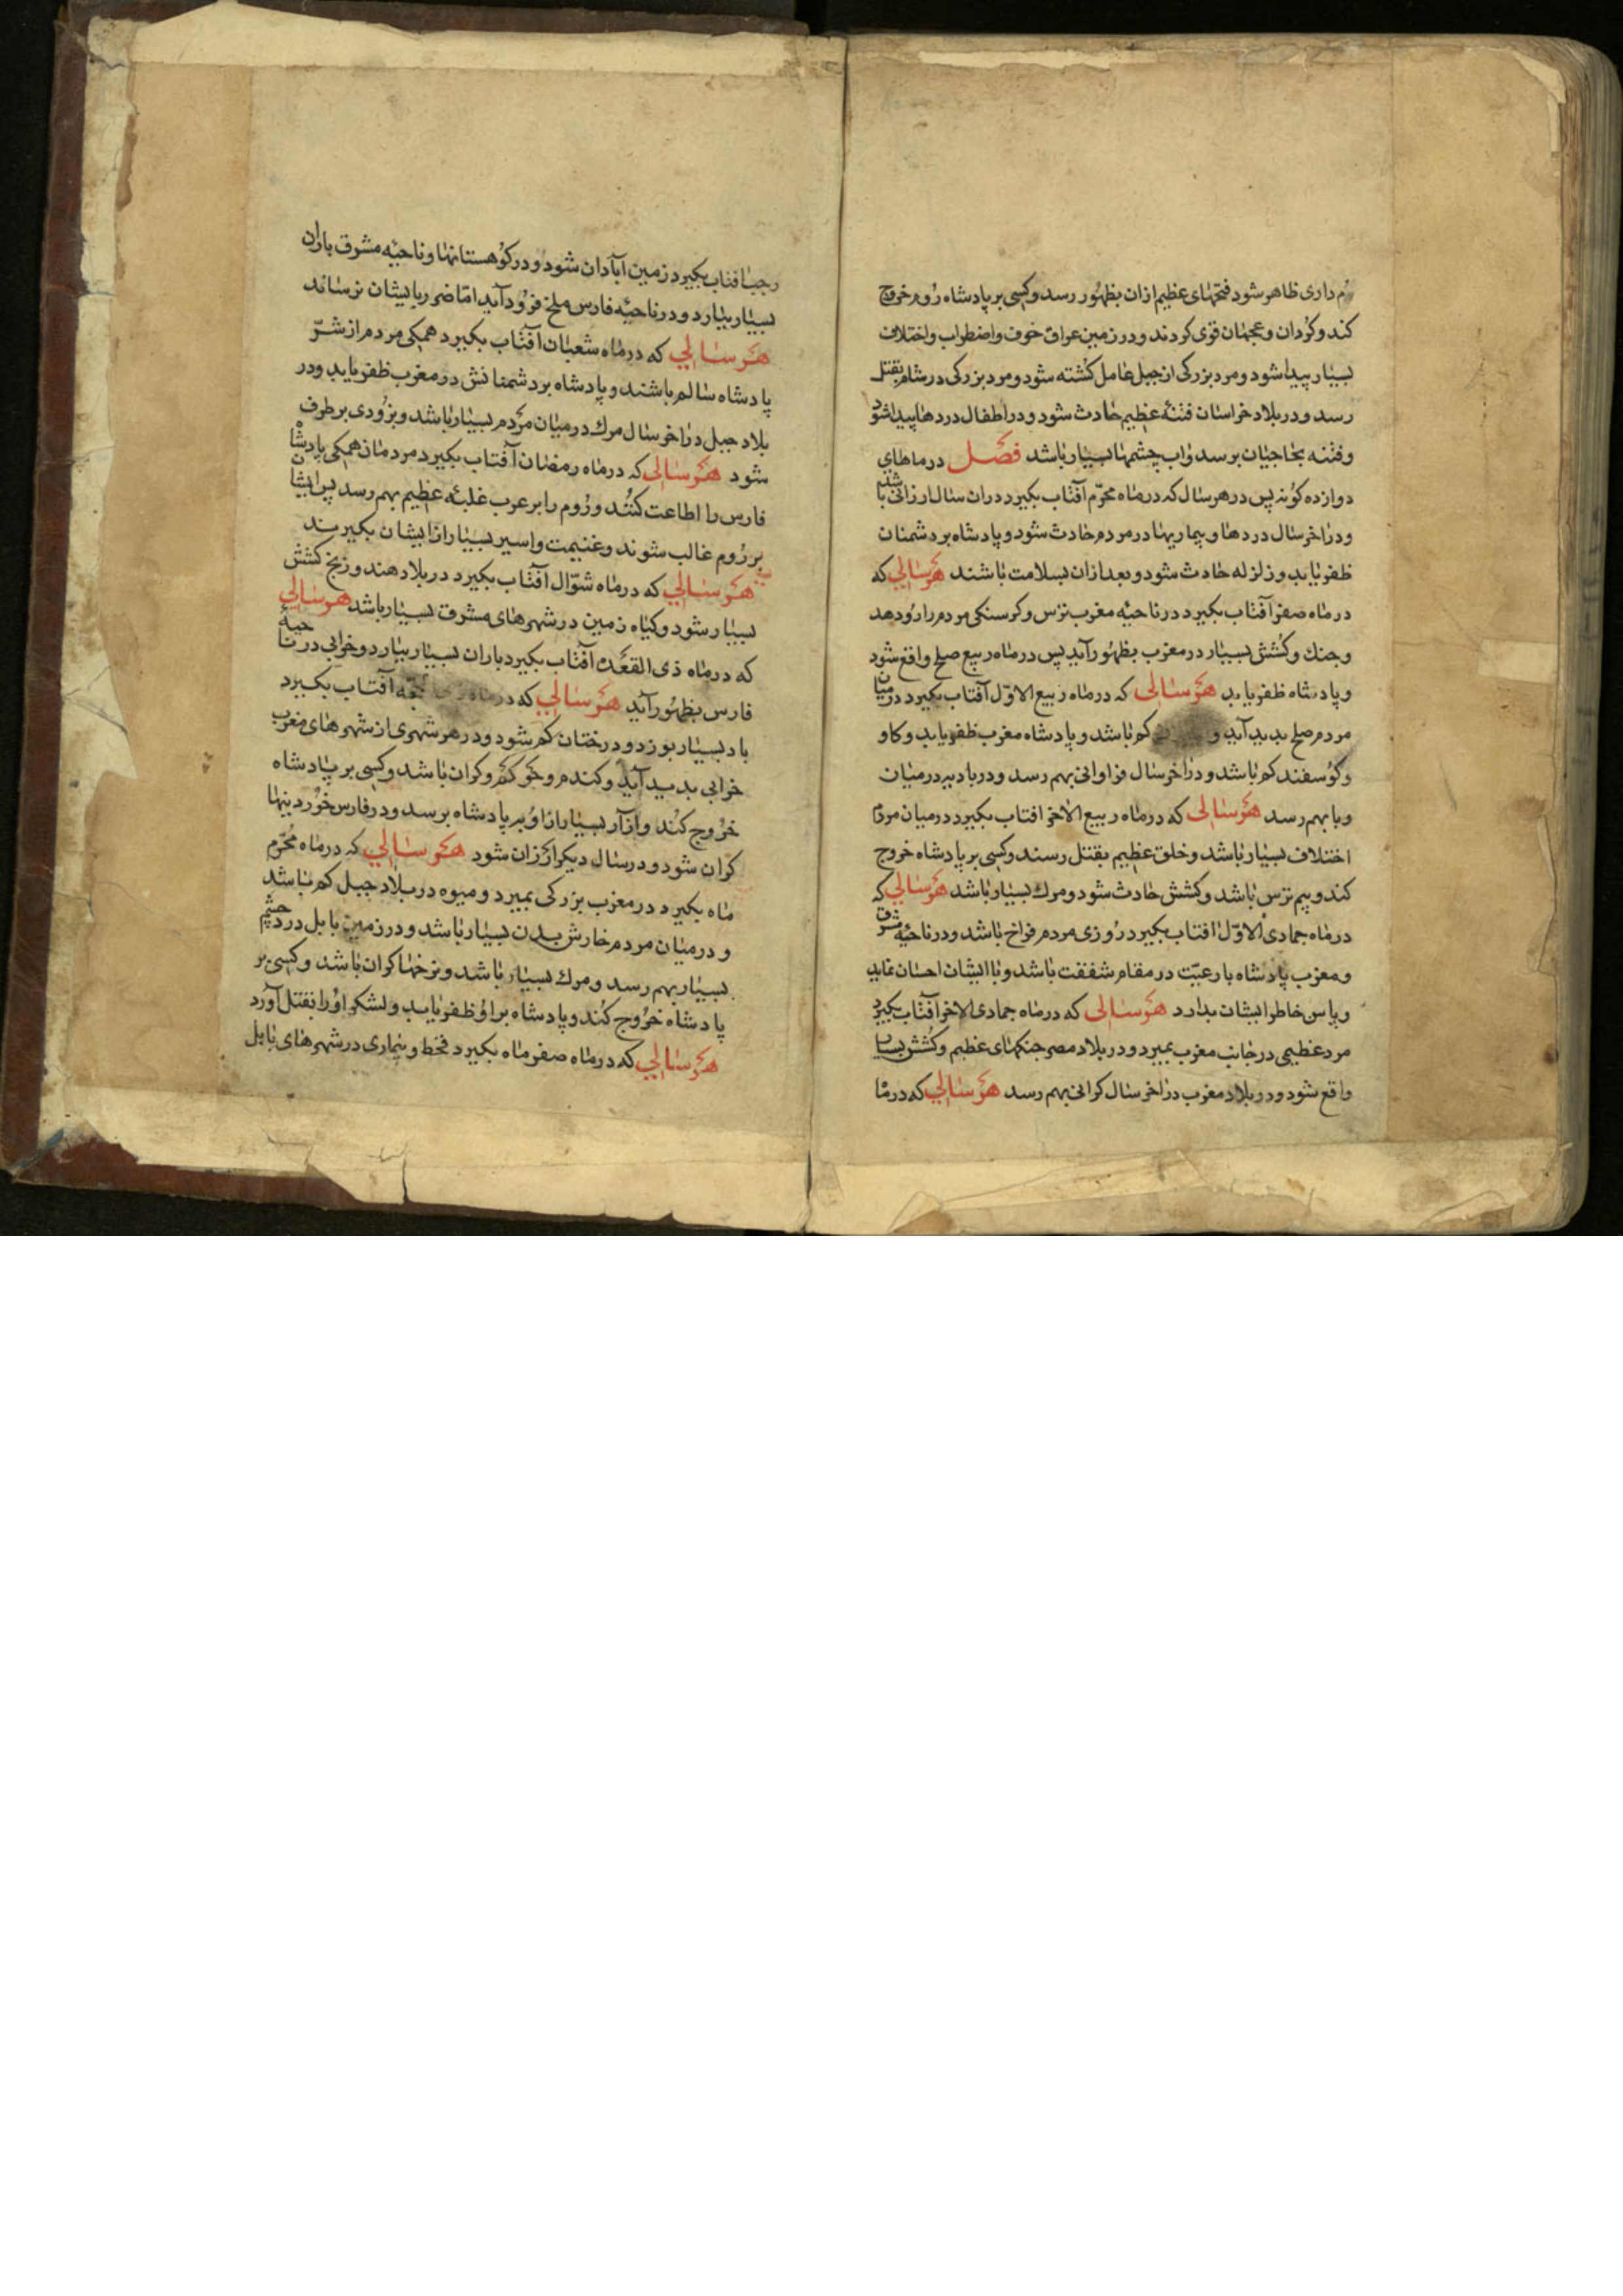 دم داری ظاهر شود فتحهای عظیم ازان بظهور رسد و کسی بر پادشاه روم خروج
کند و کردان و عجمان قوی کردند و در زمین عراق خوف و اضطراب و اختلاف
بسیار پیدا شود و مرد بزرکی از جبل عامل کشته شود و مرد بزرکی در شام بقتل
رسد و در بلاد خراسان فتنهٔ عظیم حادث شود و در اطفال دردها پیدا شود
و فتنه بحاجیان برسد و اب چشمها بسیار باشد فصل در ماهای
دوازده کونه پس در هر سال که در ماه محرّم آفتاب بکیرد دران سال ارزانی باشد
و در اخر سال دردها و بیماریها در مردم حادث شود و پادشاه بر دشمنان
ظفر یابد و زلزله حادث شود و بعد ازان بسلامت باشند هر سالی که
در ماه صفر آفتاب بکیرد در ناحیهٔ مغرب ترس و کرسنکی مردم را رو دهد
و جنك و کشش بسیار در مغرب بظهور آید پس در ماه ربیع صلح واقع شود
و پادشاه ظفر یابد هر سالی که در ماه ربیع الاوّل آفتاب بکیرد در میان
مردم صلح بدید آید و کم باشد و پادشاه مغرب ظفر یابد و کاو
و کوسفند کم باشد و در اخر سال فراوانی بهم رسد و در بادیه در میان
وبا بهم رسد هر سالی که در ماه ربیع الاخر افتاب بکیرد در میان مردم
اختلاف بسیار باشد و خلق عظیم بقتل رسند و کسی بر پادشاه خروج
کند و بیم ترس باشد و کشش حادث شود و مرك بسیار باشد هر سالی که
در ماه جمادی الاوّل افتاب بکیرد روزی مردم فراخ باشد و در ناحیهٔ مشرق
و مغرب پادشاه با رعیّت در مقام شفقت باشد و با ایشان احسان نماید
و پاس خاطر ایشان بدارد هر سالی که در ماه جمادی الاخر آفتاب بکیرد
مرد عظیمی در جانب مغرب بمیرد و در بلاد مصر جنکهای عظیم و کشش بسیار
واقع شود و در بلاد مغرب در اخر سال کرانی بهم رسد هر سالی که در ماه
رجب افتاب بکیرد زمین آبادان شود و در کوهستانها و ناحیهٔ مشرق باران
بسیار ببارد و در ناحیهٔ فارس ملخ فرود آید امّا ضرر بایشان نرساند
هر سالی که در ماه شعبان آفتاب بکیرد همکی مردم از شرّ
پادشاه سالم باشند و پادشاه بر دشمنانش در مغرب ظفر یابد و در
بلاد جبل در اخر سال مرك در میان مردم بسیار باشد و بزودی بر طرف
شود هر سالی که در ماه رمضان آفتاب بکیرد مردمان همکی پادشاه
فارس را اطاعت کنند و روم را بر عرب غلبهٔ عظیم بهم رسد پس ایشان
بر روم غالب شوند و غنیمت و اسیر بسیار از ایشان بکیرند
هر سالی که در ماه شوّال آفتاب بکیرد در بلاد هند و زنج کشش
بسیار شود و کیاه زمین در شهرهای مشرق بسیار باشد هر سالی
که در ماه ذی القعده آفتاب بکیرد باران بسیار ببارد و خرابی در ناحیهٔ
فارس بظهور آید هر سالی که در ماه ذی حجّه آفتاب بکیرد
باد بسیار بوزد و درختان کم شود و در هر شهری از شهرهای مغرب
خرابی بدید آید و کندم و جو کم و کران باشد و کسی بر پادشاه
خروج کند و ازار بسیار از او بر پادشاه برسد و در فارس خوردنیها
کران شود و در سال دیکر ارزان شود هر سالی که در ماه محرّم
ماه بکیرد در مغرب بزرکی بمیرد و میوه در بلاد جبل کم باشد
و در میان مردم خارش بدن بسیار باشد و در زمین بابل درد چشم
بسیار بهم رسد و مرك بسیار باشد و نرخها کران باشد و کسی بر
پادشاه خروج کند و پادشاه بر او ظفر یابد و لشکر او را بقتل آورد
هر سالی که در ماه صفر ماه بکیرد قحط و بیماری در شهرهای بابل